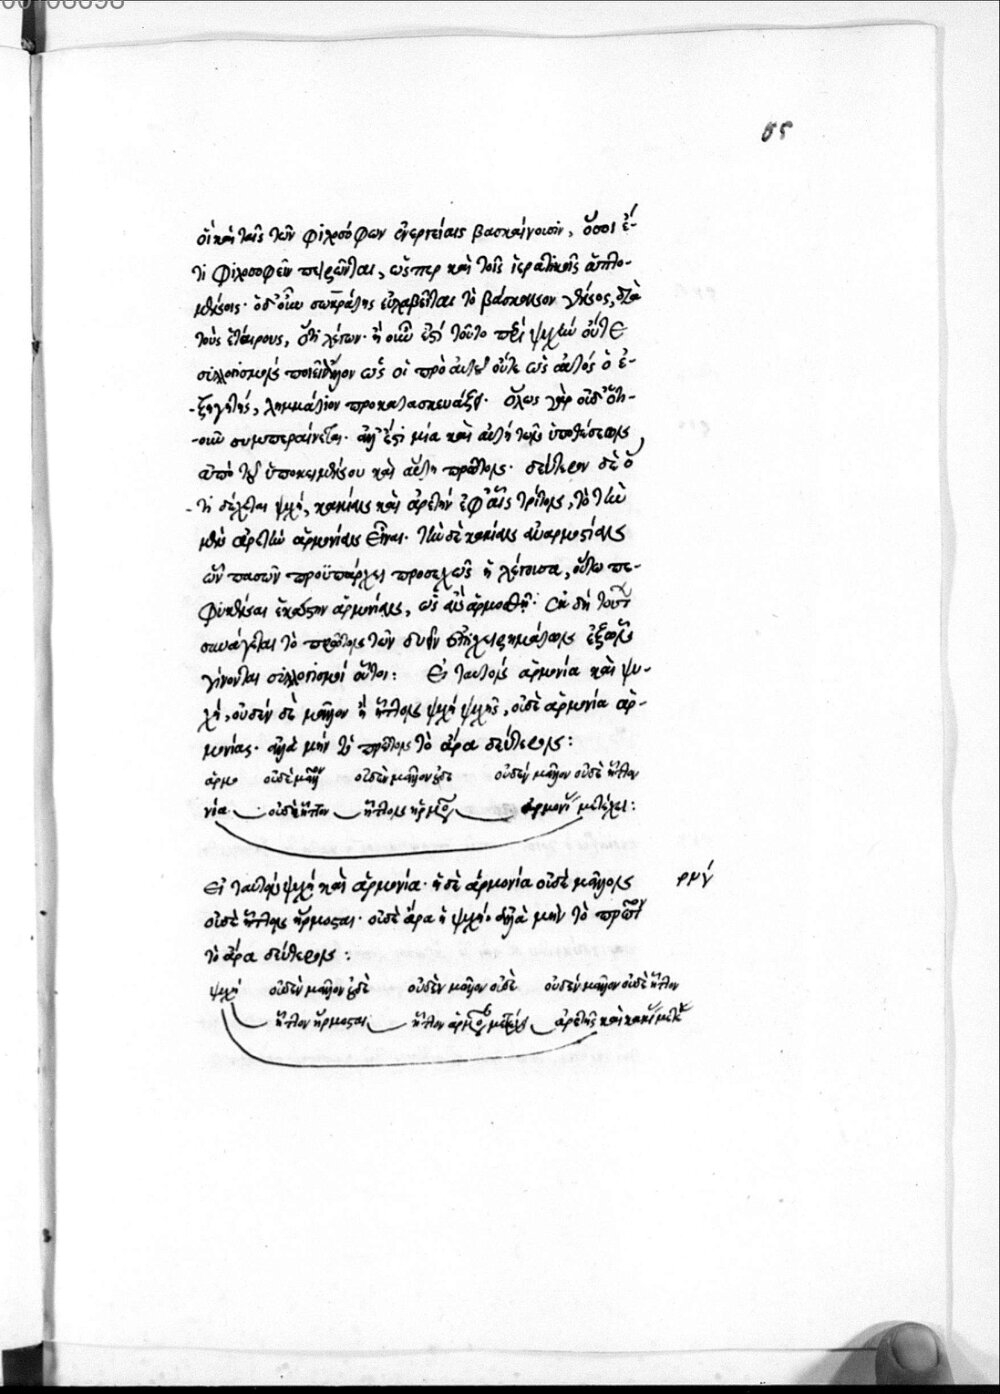 οἳ καὶ ταῖς τῶν φιλοσόφων ἐνεργείαις βασκαίνουσιν, ὅσοι ἔ-
τι φιλοσοφεῖν πειρῶνται, ὥσπερ καὶ τοῖς ἱερατικοῖς ἁπτο-
μένοις· ὁ δ' οὖν σωκράτης εὐλαβεῖται τὸ βάσκανον γένος, διὰ
τοὺς ἑταίρους, λέγων· ἢ οὖν ἐστὶ τοῦτο περὶ ψυχὴν οὔτε
συλλογισμοὺς ποιεῖ ὡς οἱ πρὸ αὐτοῦ οὔτε ὡς αὐτὸς ὁ ἐ-
-ξηγητής, λημμάτιον προκατασκευάζει· ὅλως γὰρ οὐδ' ὁτι-
-οῦν συμπεραίνεται· ἀλλ' ἔστι μία καὶ αὐτὴ τῶν ὑποθέσεων,
ἀπὸ τοῦ ὑποκειμένου καὶ αὕτη πρῶτον· δεύτερον δὲ ὅ
-τι δέχεται ψυχὴ, κακίαν καὶ ἀρετήν ἐφ' αἷς τρίτον, τὸ τὴν
μὲν ἀρετὴν ἁρμονίαν εἶναι· τὴν δὲ κακίαν ἀναρμοστίαν
ὧν πασῶν προϋπάρχει προσεχῶς ἡ λέγουσα, οὕτω πε-
φυκέναι ἑκάστην ἁρμονίαν, ὡς ἂν ἁρμοσθῇ· ἐκ δὴ τούτων
συνάγεται τὸ πρῶτον τῶν δυεῖν ἐπιχειρημάτων ἐξ ὧν
γίνονται συλλογισμοὶ οὗτοι: Εἰ ταυτὸν ἁρμονία καὶ ψυ-
χή, οὐδὲν δὲ μᾶλλον ἢ ἧττον ψυχὴ ψυχῆς, οὐδὲ ἁρμονία ἁρ-
μονίας· ἀλλὰ μὴν τὸ πρῶτον τὸ ἄρα δεύτερον:
ἁρμο οὐδὲ μᾶλλον οὐδὲν μᾶλλον οὐδὲ οὐδὲν μᾶλλον οὐδὲ ἧττον
νία οὐδὲ ἧττον ἧττον ἁρμονίας μετέχει:
Εἰ ταυτὸν ψυχὴ καὶ ἁρμονία· ἡ δὲ ἁρμονία οὐδὲ μᾶλλον ρμγ
οὐδὲ ἧττον ἥρμοσται· οὐδὲ ἄρα ἡ ψυχή· ἀλλὰ μὴν τὸ πρῶτον
τὸ ἄρα δεύτερον:
ψυχὴ οὐδὲν μᾶλλον οὐδὲ οὐδὲν μᾶλλον οὐδὲ οὐδὲν μᾶλλον οὐδὲ ἧττον
ἧττον ἥρμοσται ἧττον ἁρμονίας μετέχει ἀρετῆς καὶ κακίας μετέχει